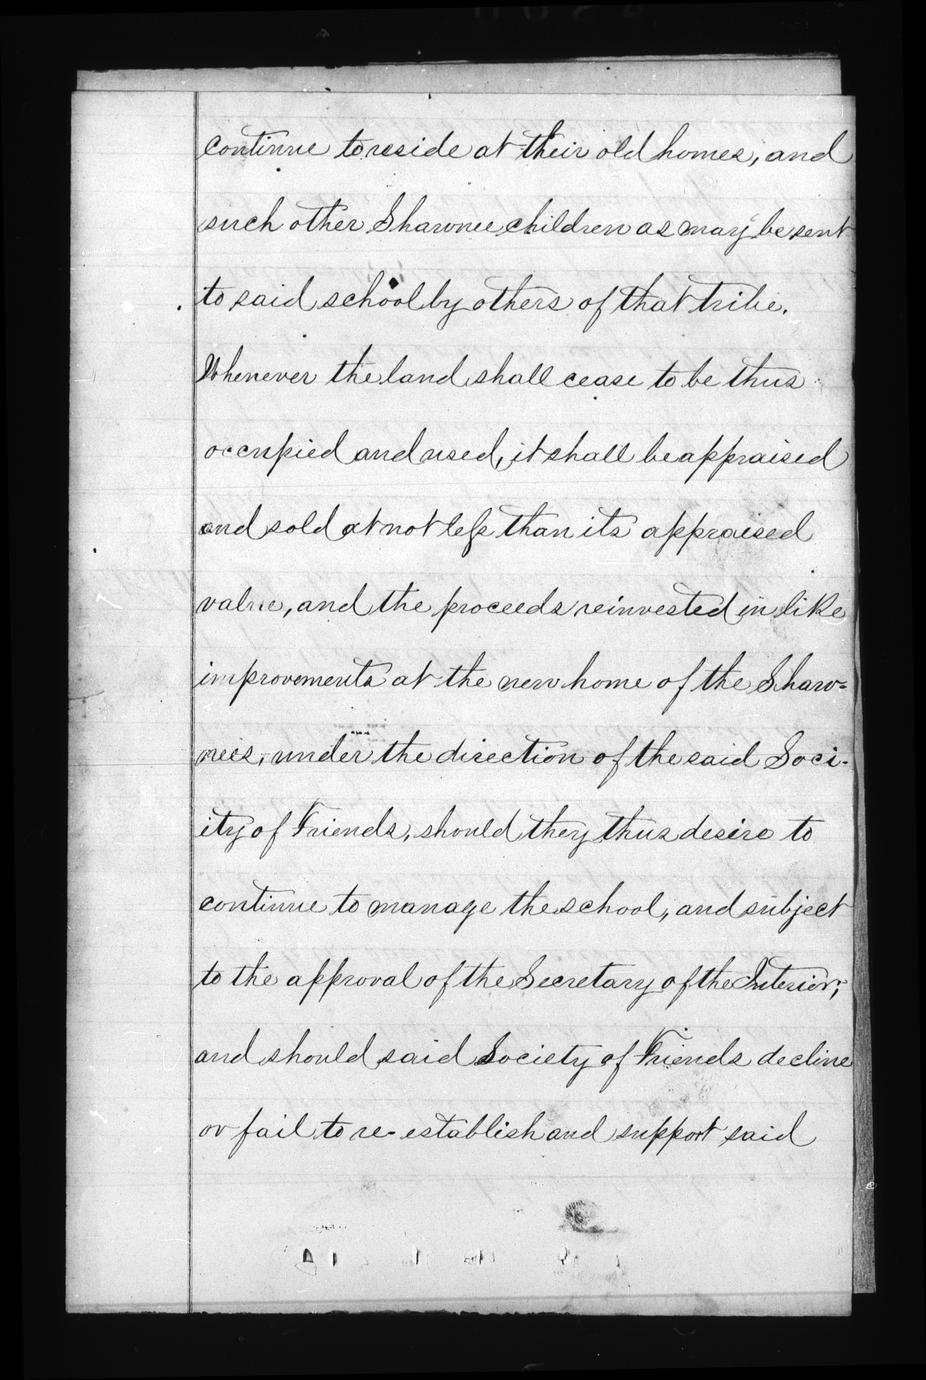 continue to reside at their old homes, and
such other Shawnee children as may be sent
to said school by others of that tribe.
Whenever the land shall cease to be thus
occupied and used, it shall be appraised
and sold at not less than its appraised
value, and the proceeds reinvested in like
improvements at the new home of the Shaw-
nees, under the direction of the said Soci-
ity of Friends, should they thus desire to
continue to manage the school, and subject
to the approval of the Secretary of the Interior;
and should said Society of Friends decline
or fail to re-establish and support said